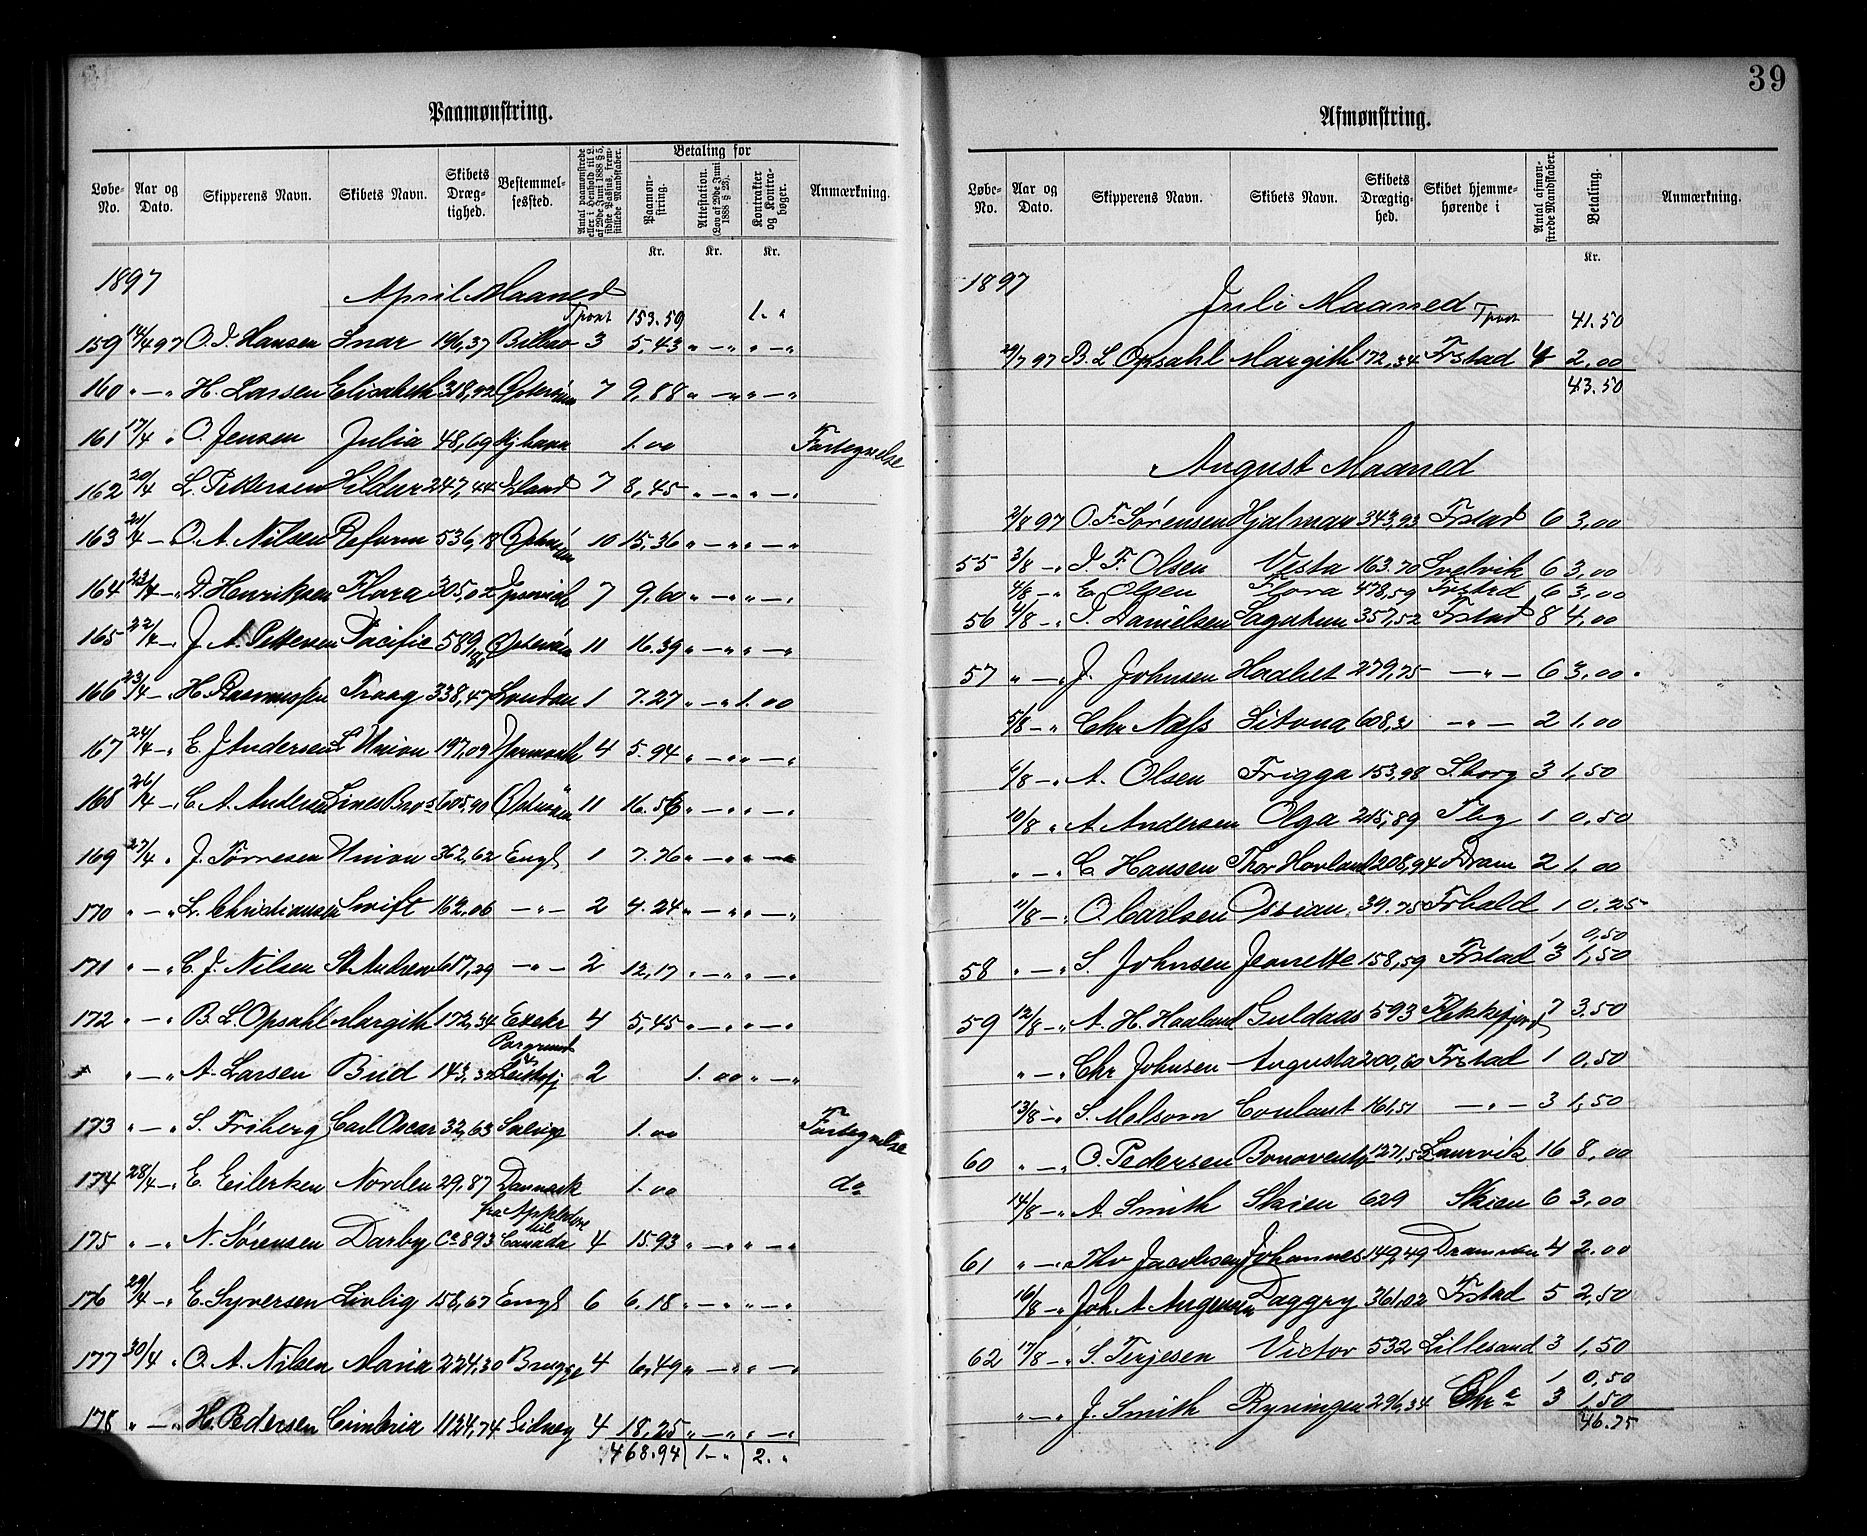 Paamønstring.
Løbe-No. Aar og Dato. Skipperens Navn. Skibets Navn. Skibets Dræg-tighed. Bestemmel-sessted. Antal paamønstrede eller i Henhold til L. af 29de Juni 1888 § 5, sidste Passus, frem-stillede Mandskaber. Betaling for Paamøn-string. Attestation. (Lov af 29de Juni 1888 § 23). Kontrakter og Kontra-bøger. Anmærkning.
Kr. Kr. Kr.
1897 April Maaned
Tport 153.59 1. "
159 14/4 97 O. J. Hansen Snar 196,37 Bilbao 3 5,43 " — " " — "
160 " — " H. Larsen Elisabeth 318,92 7 9,88 " — " " — "
161 17/4 " O. Jensen Julia 48,69 Kjhavn 1.00 Fortegnelse
162 20/4 L. Pettersen Hildur 247,44 Island 7 8,45 " — " " — "
163 21/4 — O. A. Nilsen Reform 536,18 10 15,36 " — " " — "
164 23/4 — " D. Henriksen Flora 305,02 Ipswich 7 9,60 " — " " — "
165 22/4 — " J. A. Pettersen Pacific 589,81 11 16.39 " — " " — "
166 23/4 — " H. Rasmussen Traag 338,47 London 1 7.27 " — " 1.00
167 24/4 — " E. J. Andersen L' Union 197,09 Yarmouth 4 5.94 " — " " — "
168 26/4 — " C. A. Andersen Lines Bros 605,90 11 16.56 " — " " — "
169 27/4 " J. Tørresen Union 362,62 Engl 1 7.76 " — " " — "
170 " — " L. Christiansen Swift 162.06 — " — 2 4.24 " — " " — "
171 " — " C. J. Nilsen St Andrew 617,29 — " — 2 12,17 " — " " — "
172 " — " B. L. Opsahl Margith 172,34 Exeter 4 5,45 " — " " — "
" — " A. Larsen Bud 143,37 Porgrund & 2 1.00 " — "
173 " — " S. Friberg Carl Oscar 32,63 Sverige 1.00 Fortegnelse
174 28/4 — " E. Eilerken Norden 29.87 Danmark 1.00 do
175 " — " N. Sørensen Darby Ca 893 fra Appledore til Canada 4 15.93 " — " " — "
176 29/4 — " E. Syversen Livlig 158,67 Engl 6 6.18 " — " " — "
177 30/4 " O. A. Nilsen Maria 224,30 Brugge 4 6,49 " — " " — "
178 " — " H. Pedersen Cimbria 1124,74 Sidney 4 18,25 " — " " — "
468.94 1 — " 2. "
39
Afmønstring.
Løbe-No. Aar og Dato. Skipperens Navn. Skibets Navn. Skibets Drægtig-hed. Skibet hjemme-hørende i Antal afmøn-strede Mandskaber. Betaling. Anmærkning.
Kr.
1897 Juli Maaned Tport 41.50
29/7 97 B. L. Opsahl Margith 172,34 Frstad 4 2,00
43.50
August Maaned
2/8 97 O. F. Sørensen Hjalmar 343,93 Frstad 6 3,00
55 3/8 — " J. F. Olsen Vesta 163.70 Svelvik 6 3,00
4/8 — " E. Olsen Flora 478,59 Frstad 6 3,00
56 4/8 — " J. Danielsen Sagatun 357,52 Frstad 8 4,00
57 " — " J. Johnsen Haabet 279,75 — " — 6 3,00
5/8 — " Chr Næss Sitona 608,31 — " — 2 1.00
6/8 — " A. Olsen Frigga 153,98 S.borg 3 1,50
10/8 " A Andersen Olga 215,89 Tbg 1 0,50
" — " C Hansen Thor Hovland 208,94 Dram 2 1,00
11/8 — " O. Carlsen Ossian 39.75 Frhald 1 0,25
1 0,50
58 " — " S. Johnsen Jeanette 158,59 Frstad 3 1,50
59 12/8 — " A. H. Haaland Guldaas 593 Flekkefjord 7 3.50
" — " Chr Johnsen Augusta 200,60 Frstad 1 0,50
13/8 — " S. Melsom Coulant 161,51 — " — 3 1,50
60 " — " O. Pedersen Bonaventa 1271,5 Laurvik 16 8,00
14/8 — " A. Smith Skien 629 Skien 6 3,00
61 " — " Thv Jacobsen Johannes 149,49 Drammen 4 2.00
16/8 — " Joh A Daggry 361,02 Frstad 5 2,50
62 17/8 — " S. Terjesen Victor 532 Lillesand 3 1,50
1 0,50
" — " J. Smith Ryvingen 296,34 Chra 3 1,50
46.75